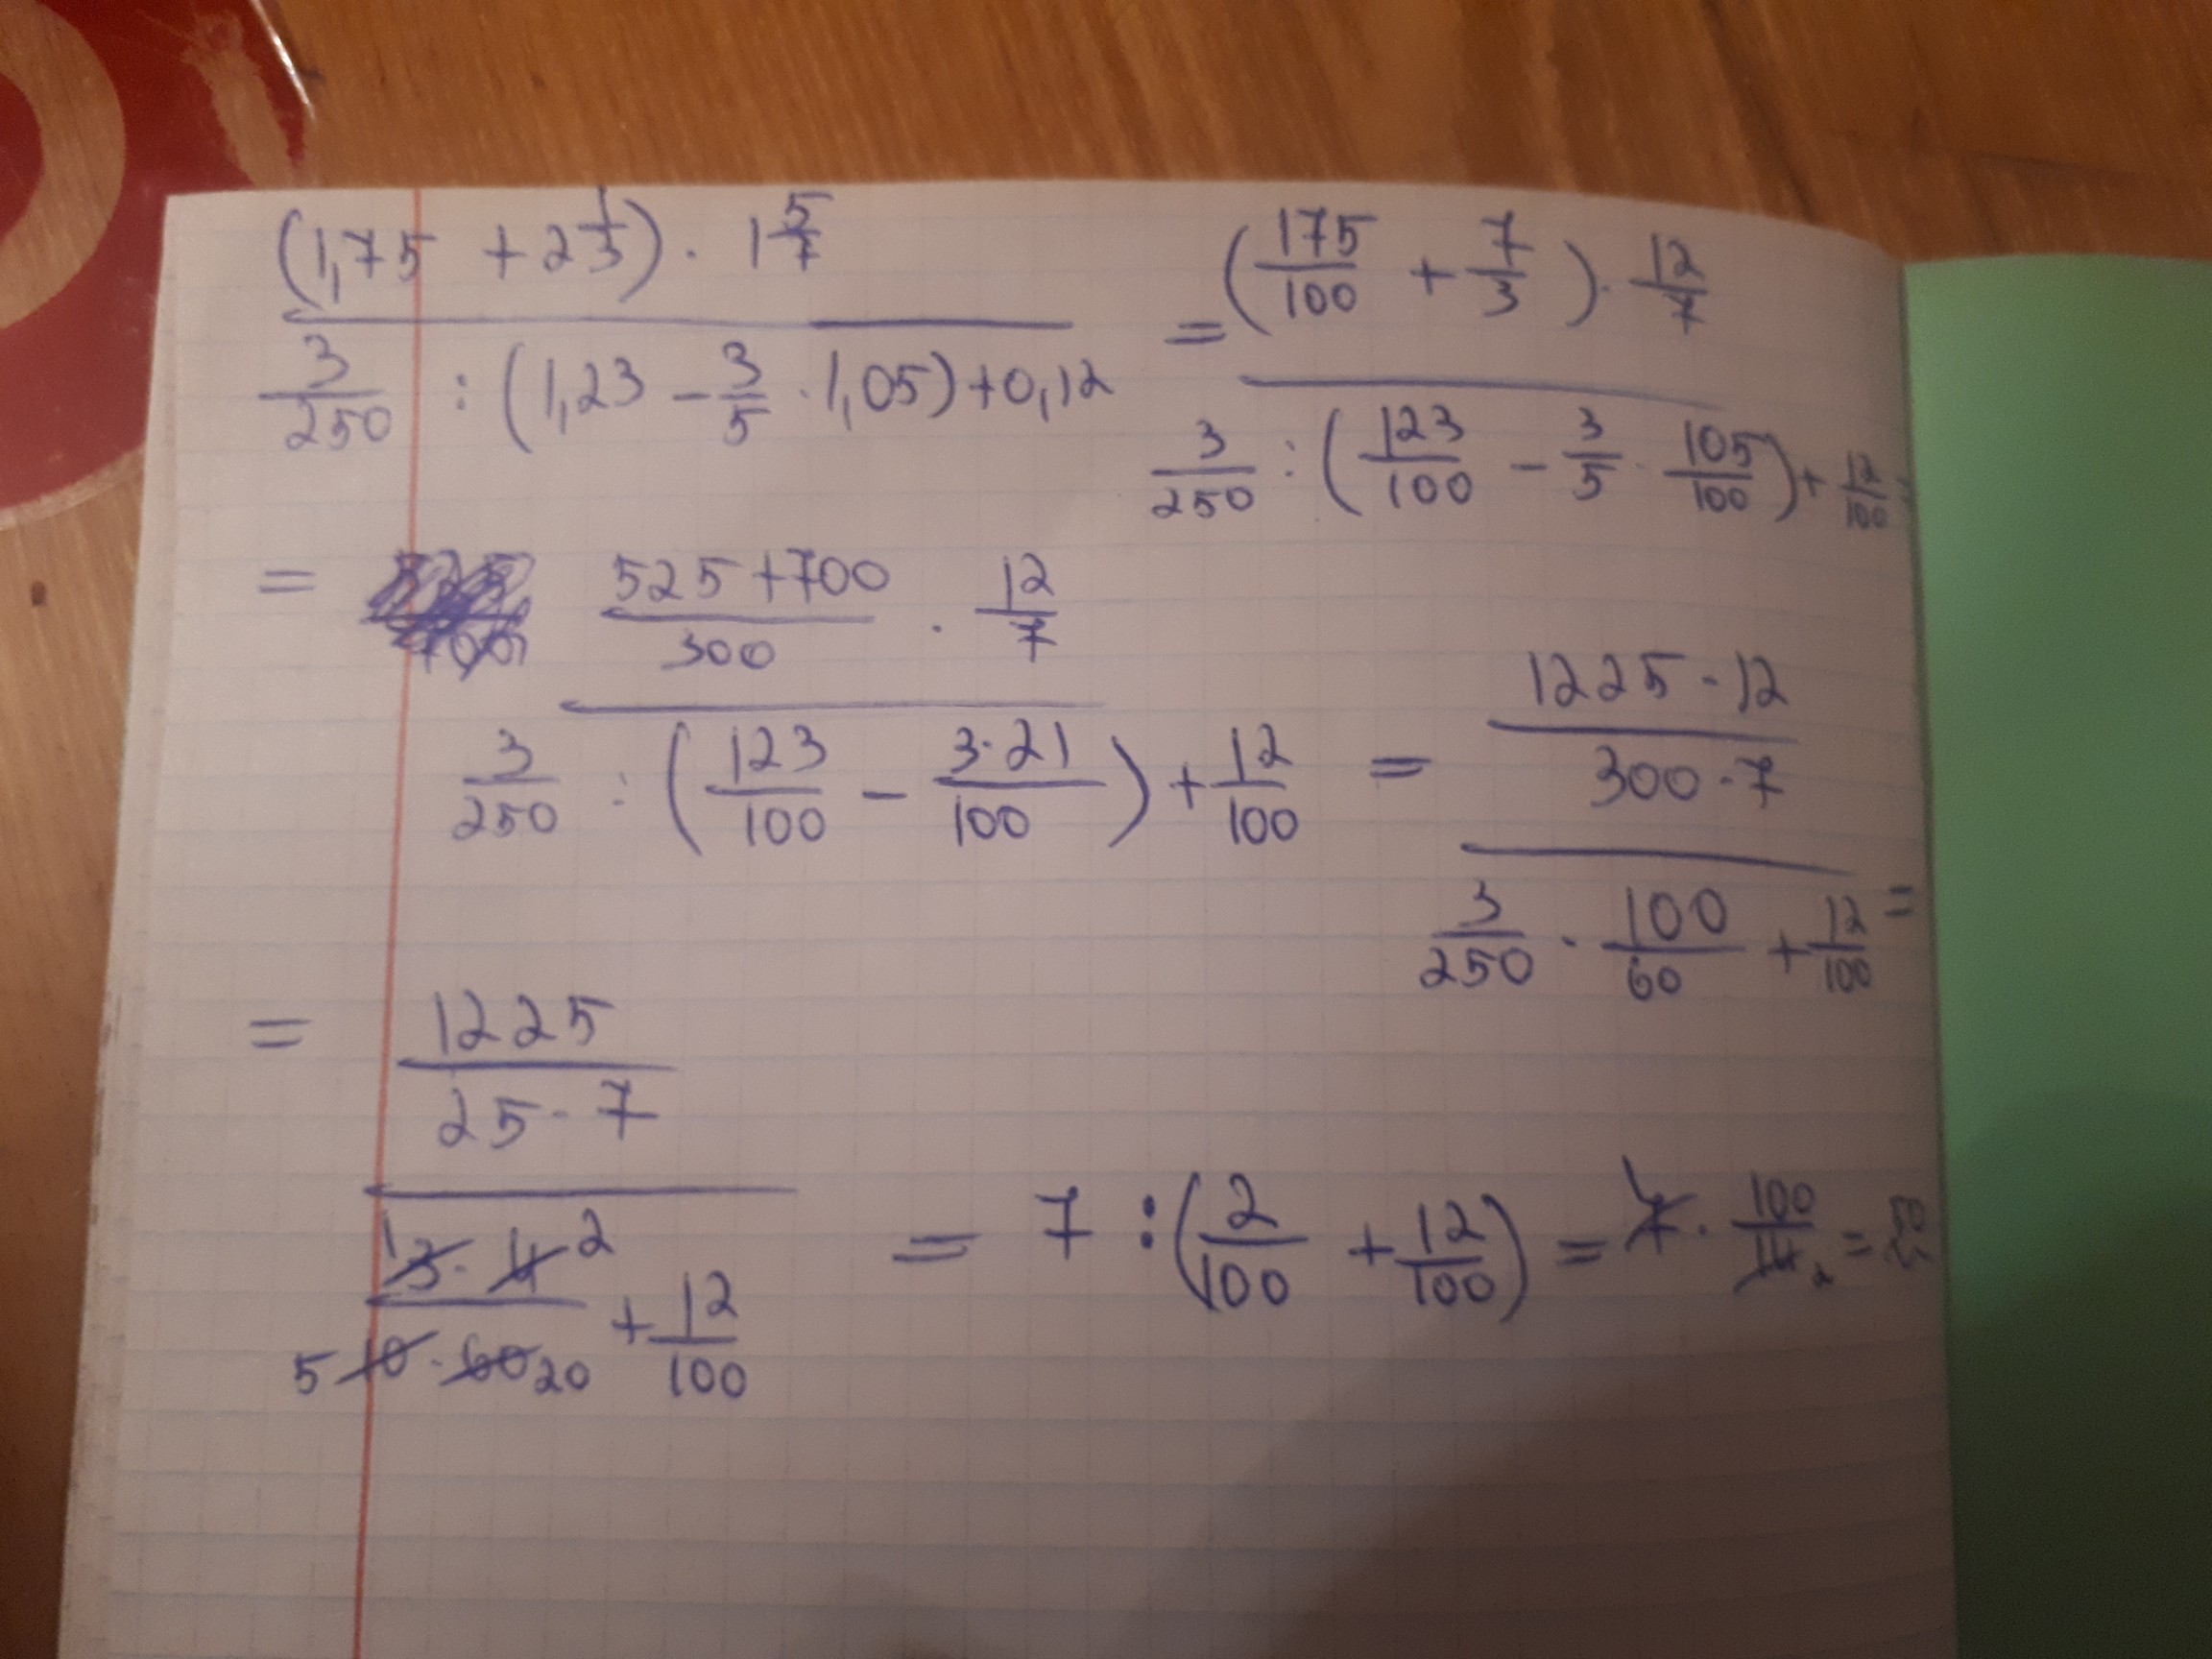 (1,75 + 2 1/3) · 1 5/7 = (175/100 + 7/3) · 12/7
3/250 : (1,23 − 3/5 · 1,05) + 0,12
3/250 : (123/100 − 3/5 · 105/100) + 12/100 =
= 525+700/300 · 12/7
3/250 : (123/100 − 3·21/100) + 12/100 = 1225 · 12/300 · 7
3/250 · 100/60 + 12/100 =
= 1225/25 · 7
1 3 · 4 2/5 10 · 60 20 + 12/100 = 7 : (2/100 + 12/100) = 7 1 · 100/14 2 = 50